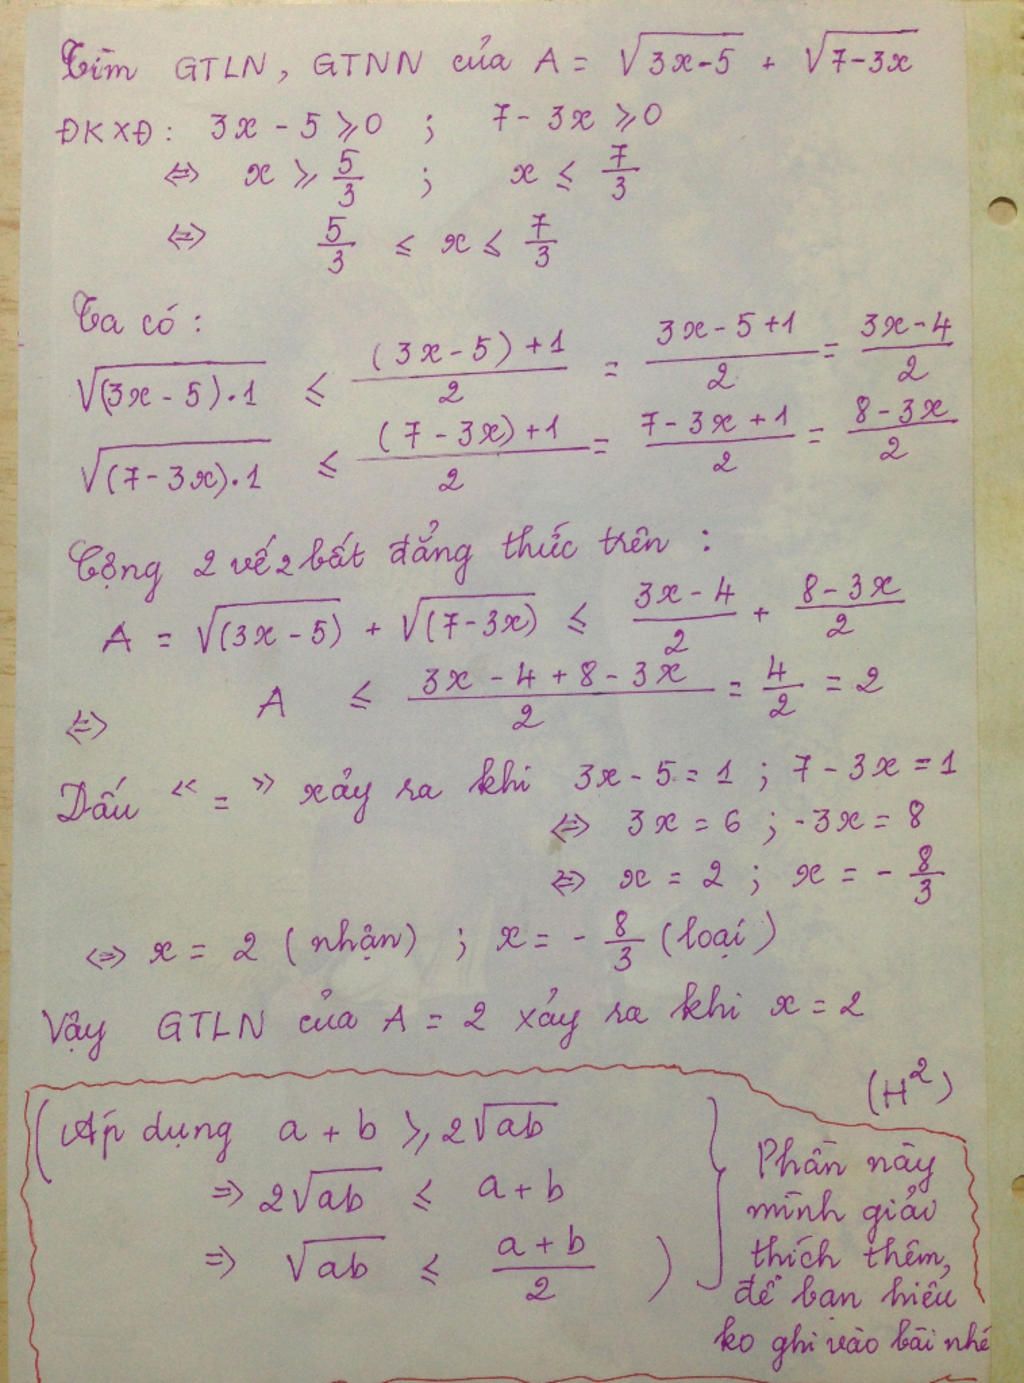 Tìm GTLN, GTNN của A = √(3x-5) + √(7-3x)
ĐKXĐ: 3x - 5 ⩾ 0 ; 7 - 3x ⩾ 0
⇔ x ⩾ 5/3 ; x ≤ 7/3
⇔ 5/3 ≤ x ≤ 7/3
Ta có:
√((3x - 5).1) ≤ ((3x - 5) + 1)/2 = (3x - 5 + 1)/2 = (3x - 4)/2
√((7 - 3x).1) ≤ ((7 - 3x) + 1)/2 = (7 - 3x + 1)/2 = (8 - 3x)/2
Cộng 2 vế 2 bất đẳng thức trên :
A = √(3x - 5) + √(7 - 3x) ≤ (3x - 4)/2 + (8 - 3x)/2
⇔ A ≤ (3x - 4 + 8 - 3x)/2 = 4/2 = 2
Dấu « = » xảy ra khi 3x - 5 = 1 ; 7 - 3x = 1
⇔ 3x = 6 ; -3x = 8
⇔ x = 2 ; x = - 8/3
⇔ x = 2 (nhận) ; x = - 8/3 (loại)
Vậy GTLN của A = 2 xảy ra khi x = 2
(H²)
(Áp dụng a + b ⩾ 2√ab
⇒ 2√ab ≤ a + b
⇒ √ab ≤ (a + b)/2 )
Phần này
mình giải
thích thêm,
để bạn hiểu
ko ghi vào bài nhé